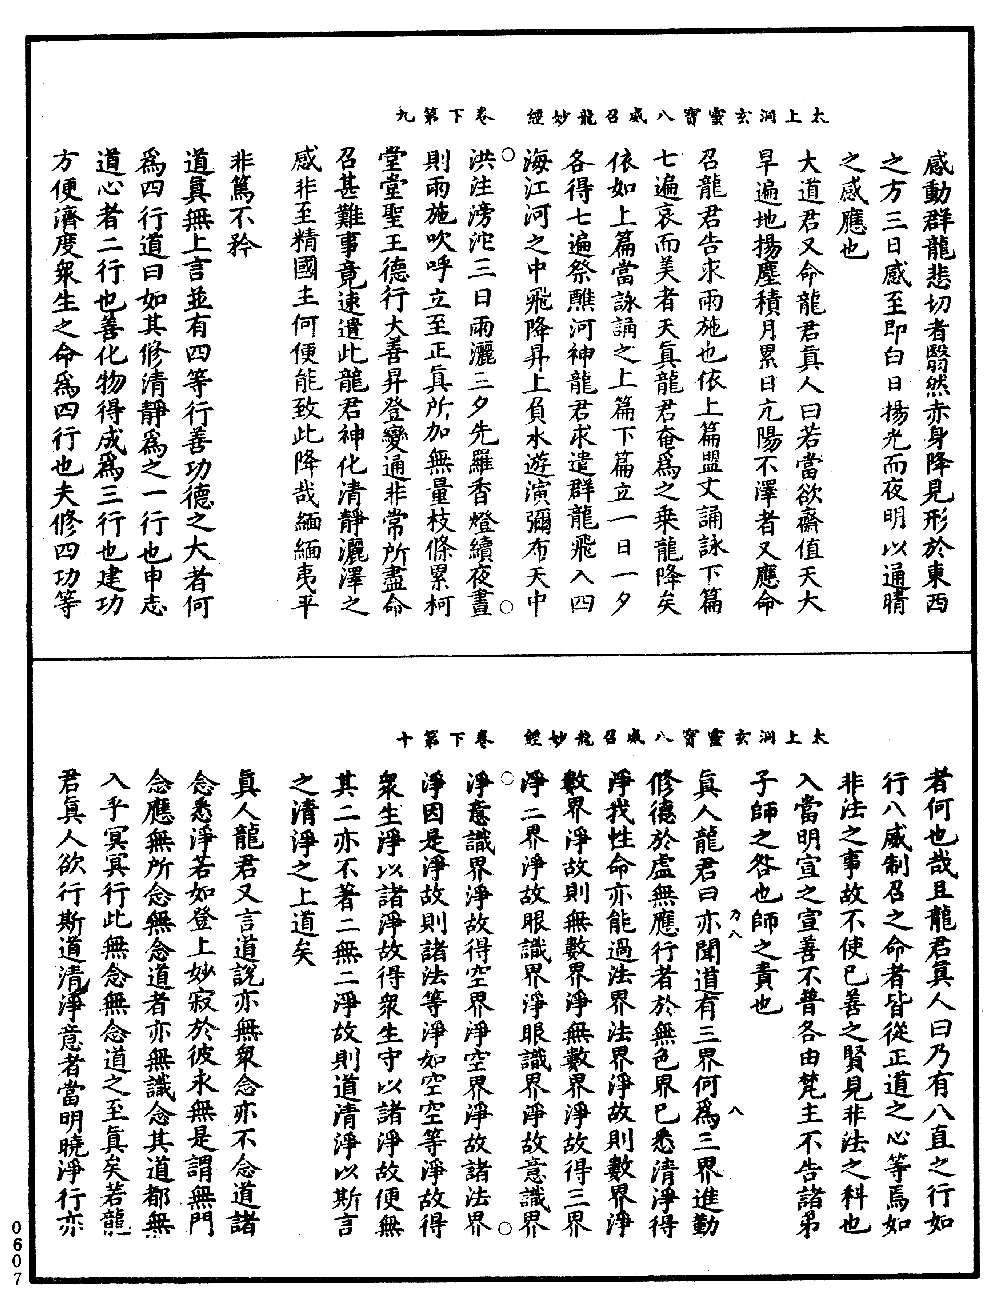 太上洞玄靈寶八威召龍妙經　卷下第九
感動群龍悲切者翳然赤身降見形於東西
之方三日感至即白日揚光而夜明以通晴
之感應也
大道君又命龍君真人曰若當欲齋值天大
旱遍地揚塵積月累日亢陽不澤者又應命
召龍君告求雨施也依上篇盟文誦詠下篇
七遍哀而美者天真龍君奄為之乘龍降矣
依如上篇當詠誦之上篇下篇立一日一夕
各得七遍祭醮河神龍君求遣群龍飛入四
海江河之中飛降昇上負水遊演彌布天中
洪注滂沱三日雨灑三夕先羅香燈續夜晝
則雨施吹呼立至正真所加無量枝條累柯
堂堂聖王德行大善昇登變通非常所盡命
召甚難事竟速遣此龍君神化清靜灑澤之
感非至精國主何便能致此降哉緬緬夷平
非篤不矜
道真無上言並有四等行善功德之大者何
為四行道曰如其修清靜為之一行也申志
道心者二行也善化物得成為三行也建功
方便濟度眾生之命為四行也夫修四功等
太上洞玄靈寶八威召龍妙經　卷下第十
者何也哉且龍君真人曰乃有八直之行如
行八威制召之命者皆從正道之心等焉如
非法之事故不使已善之賢見非法之科也
入當明宣之宣善不普各由梵主不告諸弟
子師之咎也師之責也
真人龍君曰亦聞道有三界何為三界進勤
修德於虛無應行者於無色界已悉清淨得
淨我性命亦能過法界法界淨故則數界淨
數界淨故則無數界淨無數界淨故得三界
淨二界淨故眼識界淨眼識界淨故意識界
淨意識界淨故得空界淨空界淨故諸法界
淨因是淨故則諸法等淨如空空等淨故得
眾生淨以諸淨故得眾生守以諸淨故便無
其二亦不著二無二淨故則道清淨以斯言
之清淨之上道矣
真人龍君又言道說亦無眾念亦不念道諸
念悉淨若如登上妙寂於彼永無是謂無門
念應無所念無念道者亦無識念其道都無
入乎冥冥行此無念無念道之至真矣若龍
君真人欲行斯道清淨意者當明曉淨行亦
力八
八
0607